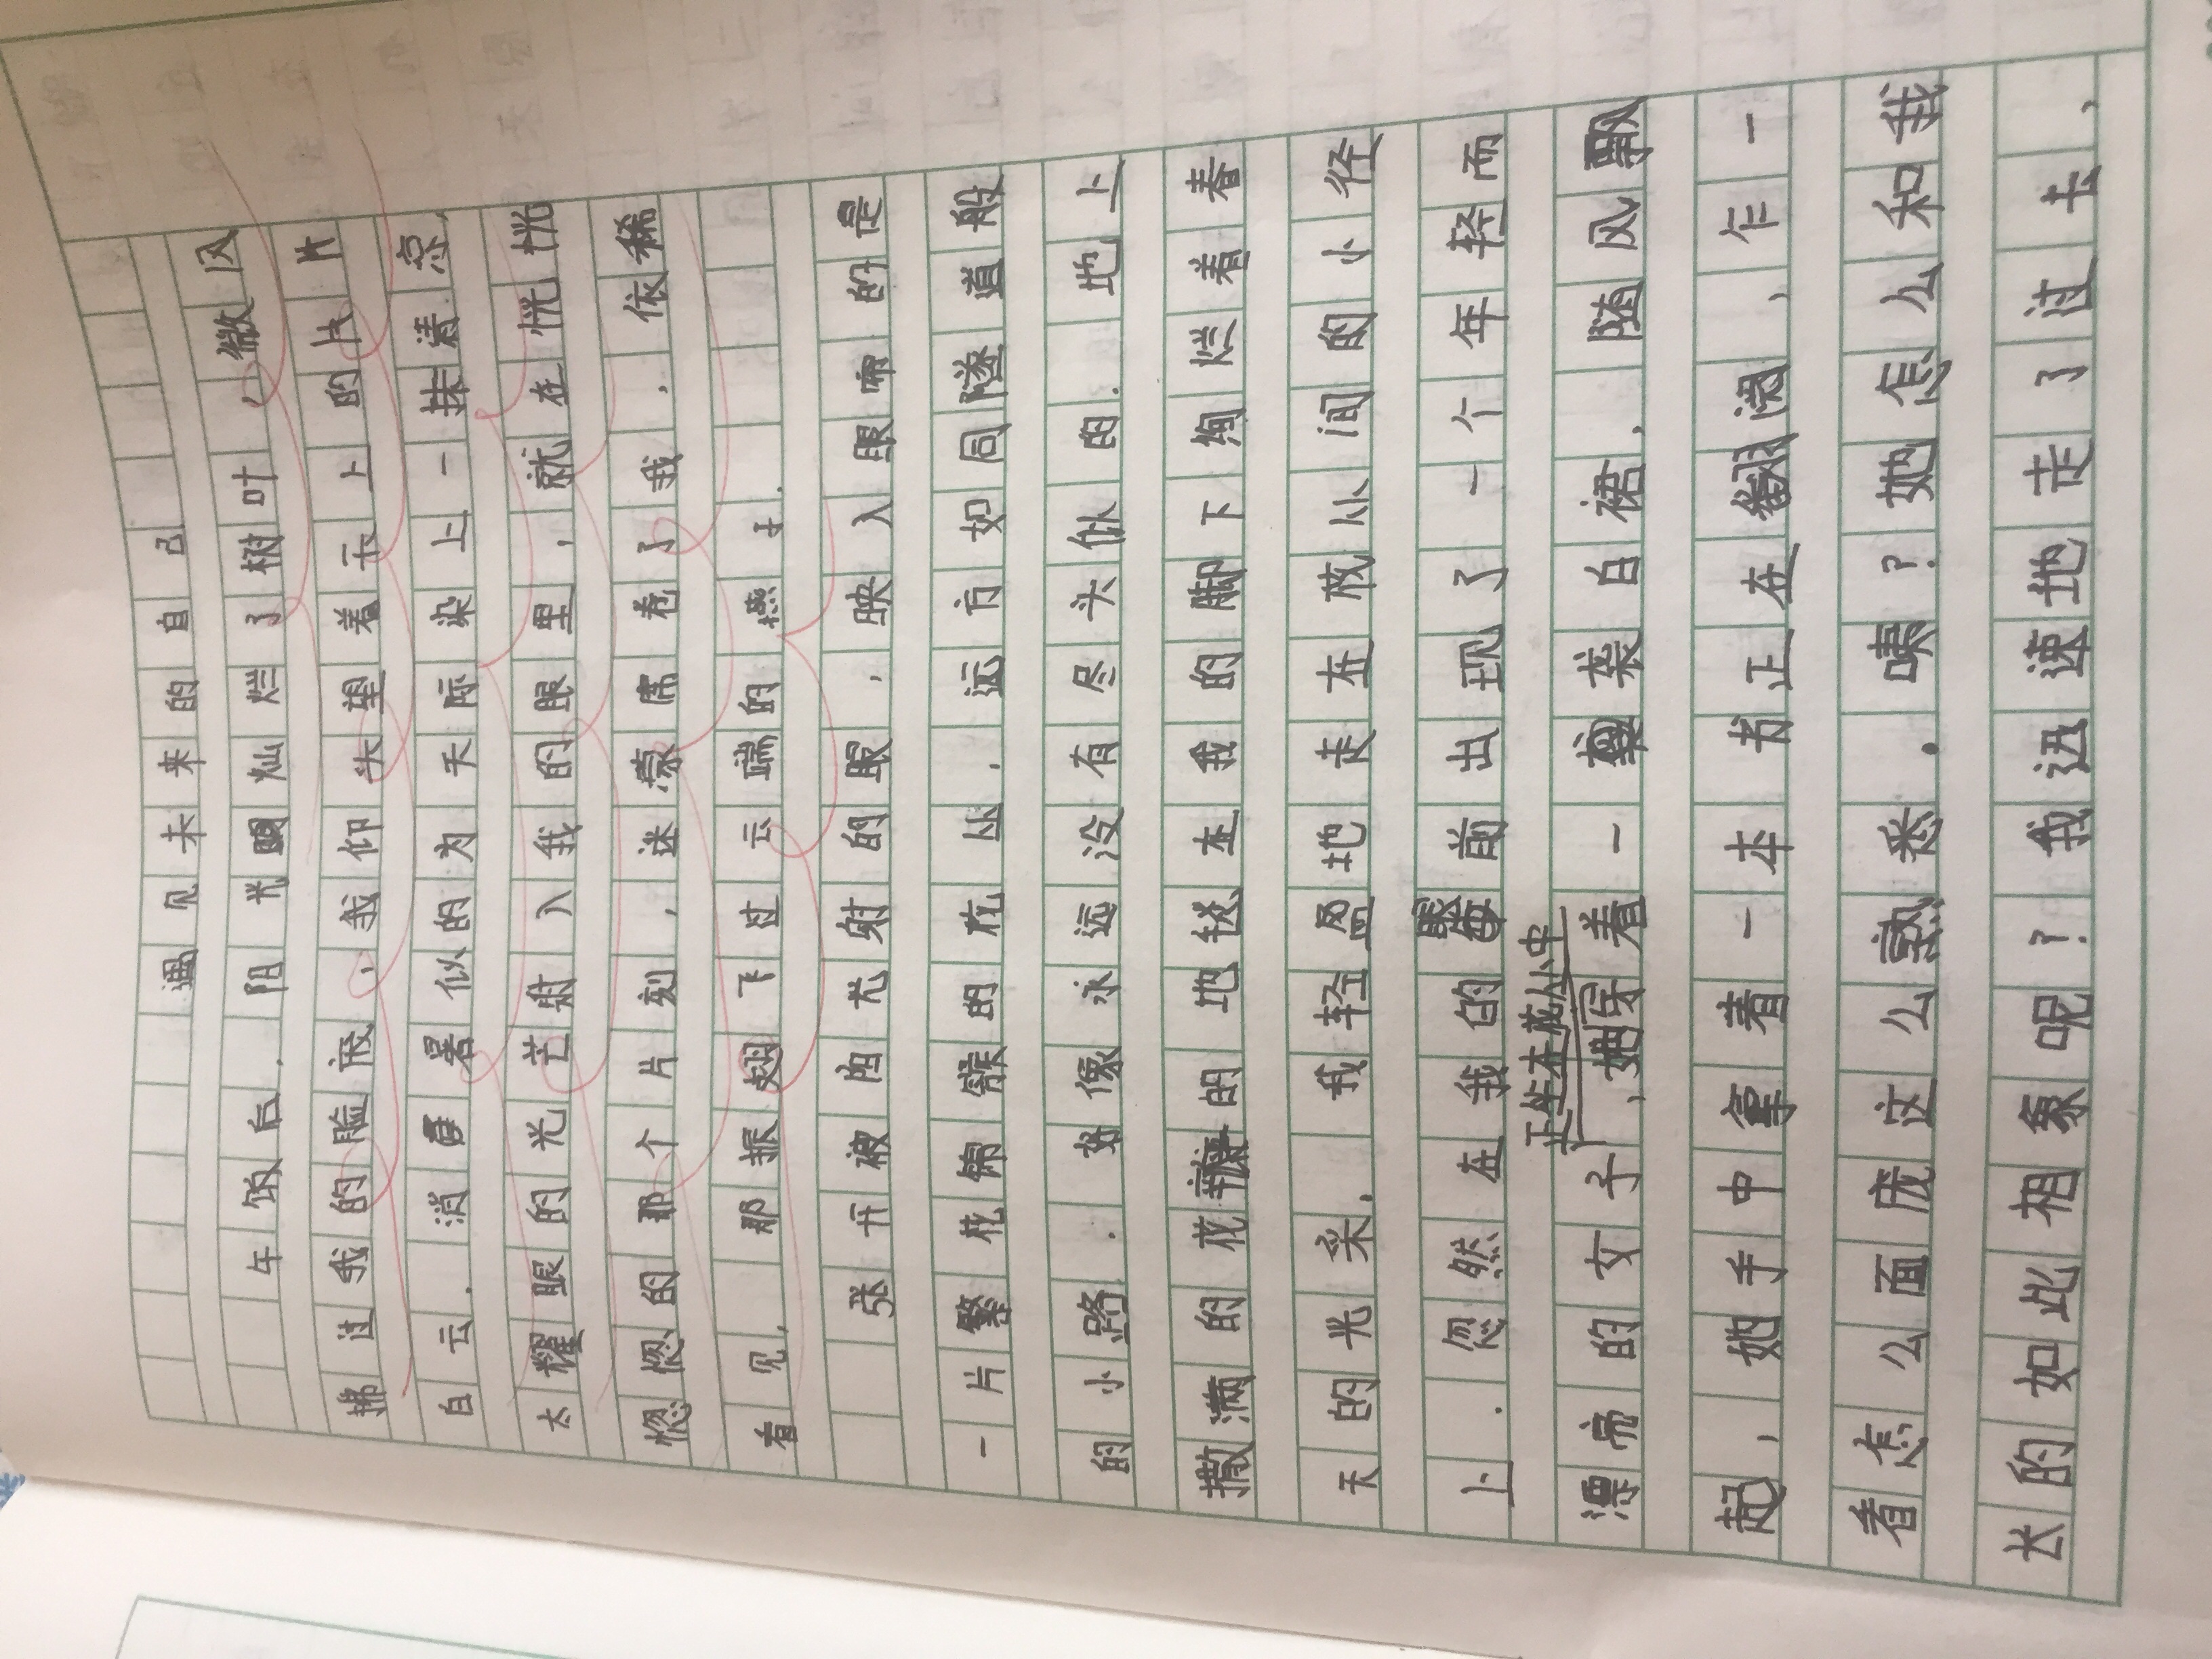 遇见未来的自己
午饭后.阳光灿烂了树叶,微风
拂过我的脸庞,我仰头望着天上的片片
白云.消暑似的为天际染上一抹清凉,
太耀眼的光芒射入我的眼里,就在恍恍
惚惚的那个片刻,迷濛席卷了我,依稀
看见,那振翅飞过云端的燕子.
张开被阳光射的眼,映入眼帘的是
一片繁花锦簇的花丛.远方如同隧道般
的小路.好像永远没有尽头似的.地上
撒满的花瓣的地毯在我的脚下绚烂着春
天的光采.我轻盈地走在花丛间的小径
上.忽然在我的前出现了一个年轻而
正坐在花丛中
漂亮的女子,她穿着一袭白裙.随风飘
起,她手中拿着一本书正在翻阅,乍一
看怎么面庞这么熟悉.噢?她怎么和我
长的如此相象呢?我迅速地走了过去,